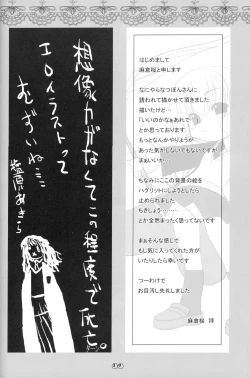 想像力がなくてこの程度で伏亡。
エロイラストって
むずいね…
はじめまして
麻倉桜と申します
なにやらなつぽんさんに
誘われて描かせて頂きました
描いたけど…
「いいのかなぁあれで
とか思っております
もっとなんかやりようが
あった気がしないでもないですが
まぁいいか…
ちなみにここの背景の絵を
ハグリットにしようとしたら
止められました
ちきしょう………
とか全然まったく思ってないです
まぁそんな感じで
もし気に入ってくれた方が
いたりしたら幸いです
つーわけで
お目汚し失礼しました
麻倉桜 拝